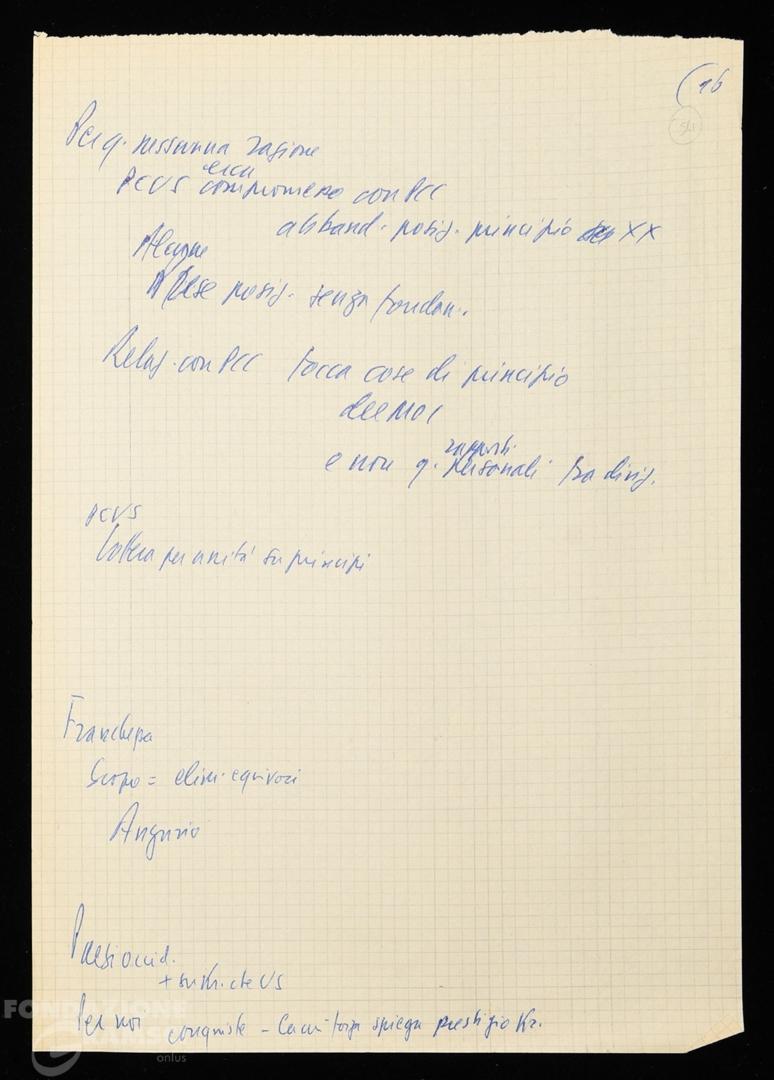 (16
54
Per q. nessunna ragione
PCUS cerca compromesso con PCC
abband. posiz. principio XX
Alcune
prese posiz. senza fondam.
Relaz. con PCC tocca cose di principio
del MOI
e non q. rapporti personali tra dirig.
PCUS
lotterà per unità su principi
Franchezza
Scopo = elim. equivoci
Augurio
Paesi occid.
+ su Kr. che US
Per noi conquiste - spiega prestigio Kr.
FONDAZIONE
GRAMSCI
onlus